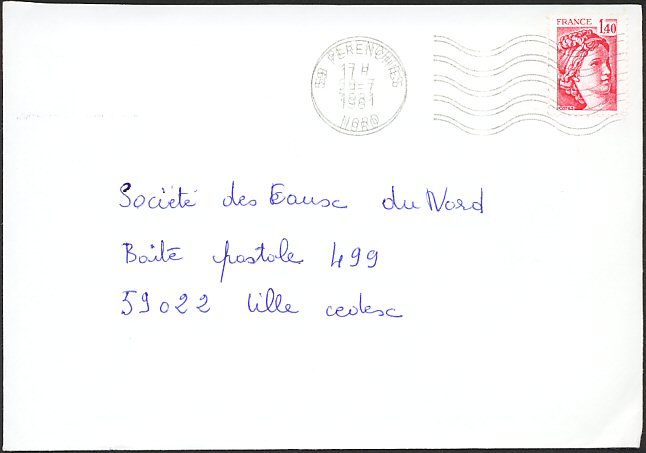 FRANCE 1,40
59 PERENCHIES
17 H
1981
NORD
Société des Eaux du Nord
Boîte postale 499
59022 Lille cedex